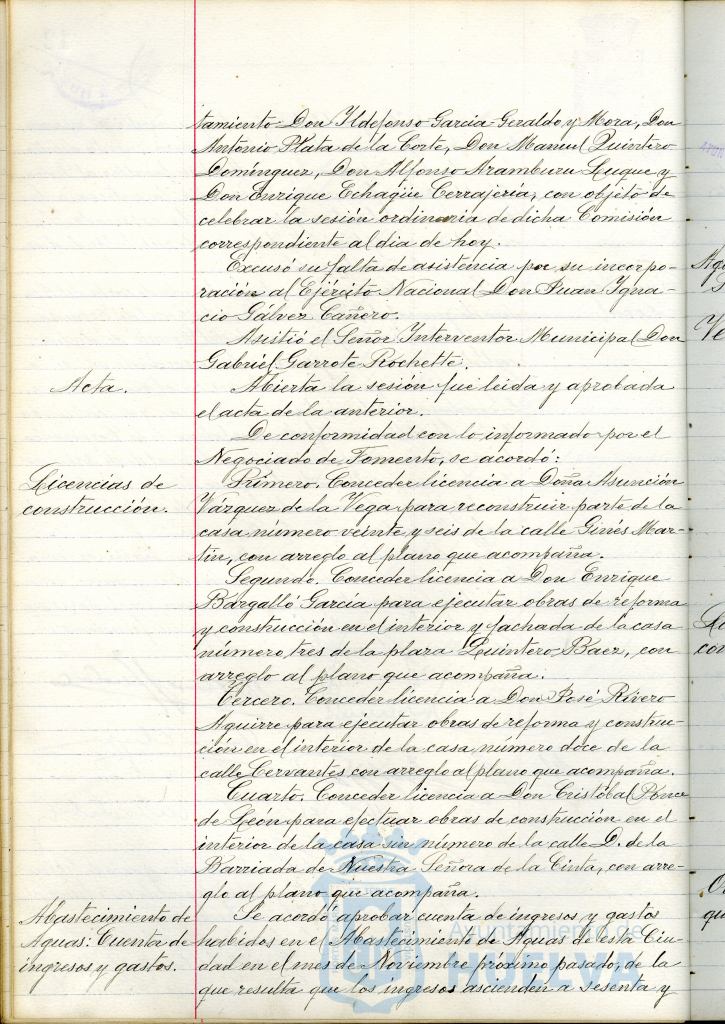 tamiento Don Ildefonso Garcia Geraldo y Mora, Don
Antonio Plata de la Corte, Don Manuel Quintero
Domínguez, Don Alfonso Aramburu Luque y
Don Enrique Echagüe Cerrajería, con objeto de
celebrar la sesión ordinaria de dicha Comisión
correspondiente al dia de hoy.
Excusó su falta de asistencia por su incorpo-
ración al Ejército Nacional Don Juan Igna-
cio Gálvez Cañero.
Asistió el Señor Interventor Municipal Don
Gabriel Garrote Rochette.
Acta.
Abierta la sesión fue leida y aprobada
el acta de la anterior.
De conformidad con lo informado por el
Negociado de Fomento, se acordó:
Licencias de
construcción.
Primero. Conceder licencia a Doña Asunción
Vázquez de la Vega para reconstruir parte de la
casa número veinte y seis de la calle Ginés Mar-
tín, con arreglo al plano que acompaña.
Segundo. Conceder licencia a Don Enrique
Bargalló García para ejecutar obras de reforma
y construcción en el interior y fachada de la casa
número tres de la plaza Quintero Baez, con
arreglo al plano que acompaña.
Tercero. Conceder licencia a Don José Rivero
Aguirre para ejecutar obras de reforma y construc-
ción en el interior de la casa número doce de la
calle Cervantes con arreglo al plano que acompaña.
Cuarto. Conceder licencia a Don Cristóbal Ponce
de León para efectuar obras de construcción en el
interior de la casa sin número de la calle D. de la
Barriada de Nuestra Señora de la Cinta, con arre-
glo al plano que acompaña.
Abastecimiento de
Aguas: Cuenta de
ingresos y gastos.
Se acordó aprobar cuenta de ingresos y gastos
habidos en el Abastecimiento de Aguas de esta Ciu-
dad en el mes de Noviembre próximo pasado, de la
que resulta que los ingresos ascienden a sesenta y
Ayuntamiento de
HUELVA